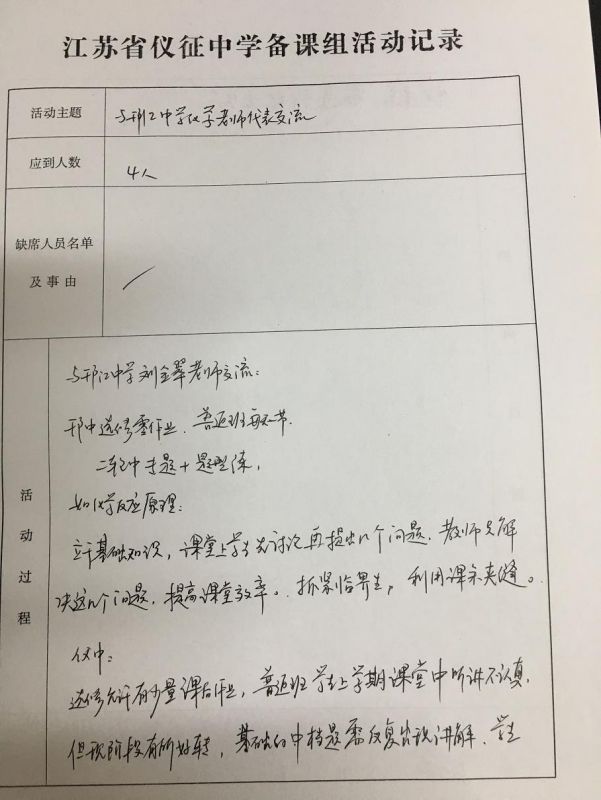 江苏省仪征中学备课组活动记录
活动主题
与邗江中学化学老师代表交流
应到人数
4人
缺席人员名单
及事由
/
活动过程
与邗江中学刘金翠老师交流:
邗中选修零作业. 普通班每天一节.
二轮中专题+题型练,
如化学反应原理:
立于基础知识, 课堂上学生先讨论再提出几个问题. 教师只解
决这几个问题, 提高课堂效率。抓紧临界生, 利用课余夹缝。
仪中:
选修允许有少量课后作业, 普通班学生上学期课堂中听讲不认真,
但现阶段有所好转, 基础的中档题需反复出现讲解. 学生